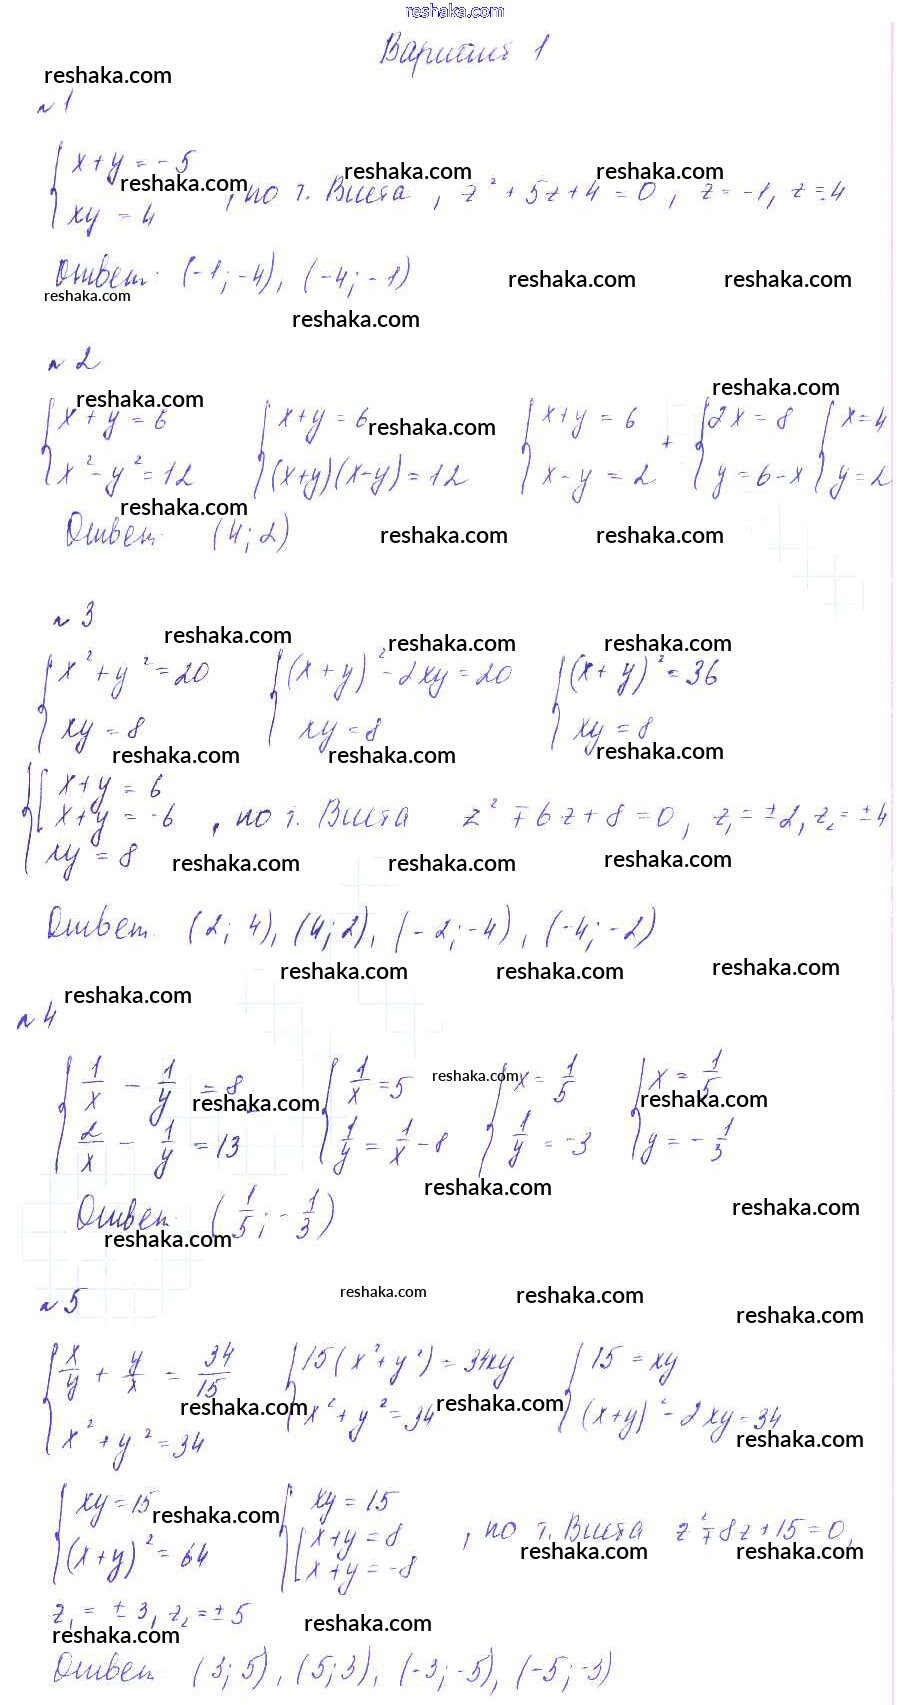 reshaka.com
Вариант 1
reshaka.com
№1
{ x + y = -5
xy = 4 , по т. Виета, z² + 5z + 4 = 0, z = -1, z = -4
reshaka.com reshaka.com reshaka.com
Ответ: (-1; -4), (-4; -1)
reshaka.com reshaka.com reshaka.com
reshaka.com
№2
reshaka.com reshaka.com
{ x + y = 6 { x + y = 6 { x + y = 6 + { 2x = 8 { x = 4
x² - y² = 12 (x+y)(x-y) = 12 x - y = 2 y = 6 - x y = 2
reshaka.com
reshaka.com
Ответ: (4; 2)
reshaka.com reshaka.com
№3
reshaka.com reshaka.com reshaka.com
{ x² + y² = 20 { (x + y)² - 2xy = 20 { (x + y)² = 36
xy = 8 xy = 8 xy = 8
reshaka.com reshaka.com reshaka.com
{ [ x + y = 6
x + y = -6 , по т. Виета z² ∓ 6z + 8 = 0, z₁ = ±2, z₂ = ±4
xy = 8
reshaka.com reshaka.com reshaka.com
Ответ: (2; 4), (4; 2), (-2; -4), (-4; -2)
reshaka.com reshaka.com reshaka.com
reshaka.com
№4
{ 1/x - 1/y = 8 { 1/x = 5 { x = 1/5 { x = 1/5
2/x - 1/y = 13 1/y = 1/x - 8 1/y = -3 y = -1/3
reshaka.com reshaka.com reshaka.com
reshaka.com
Ответ: (1/5; -1/3)
reshaka.com reshaka.com
№5
reshaka.com reshaka.com reshaka.com
{ x/y + y/x = 34/15 { 15(x² + y²) = 34xy { 15 = xy
x² + y² = 34 x² + y² = 34 (x+y)² - 2xy = 34
reshaka.com reshaka.com reshaka.com
{ xy = 15 { xy = 15
(x+y)² = 64 [ x + y = 8 , по т. Виета z² ∓ 8z + 15 = 0,
x + y = -8
reshaka.com reshaka.com reshaka.com
z₁ = ±3, z₂ = ±5
reshaka.com reshaka.com
Ответ: (3; 5), (5; 3), (-3; -5), (-5; -3)